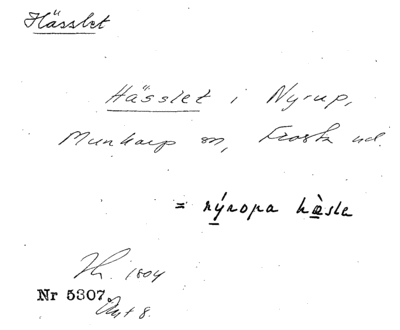 Hässlet
Hässlet i Nyrup,
Munkarp sn, Frosta hd.
= nýropa hæ̀sle
1804
Nr 5307.
Akt 8.